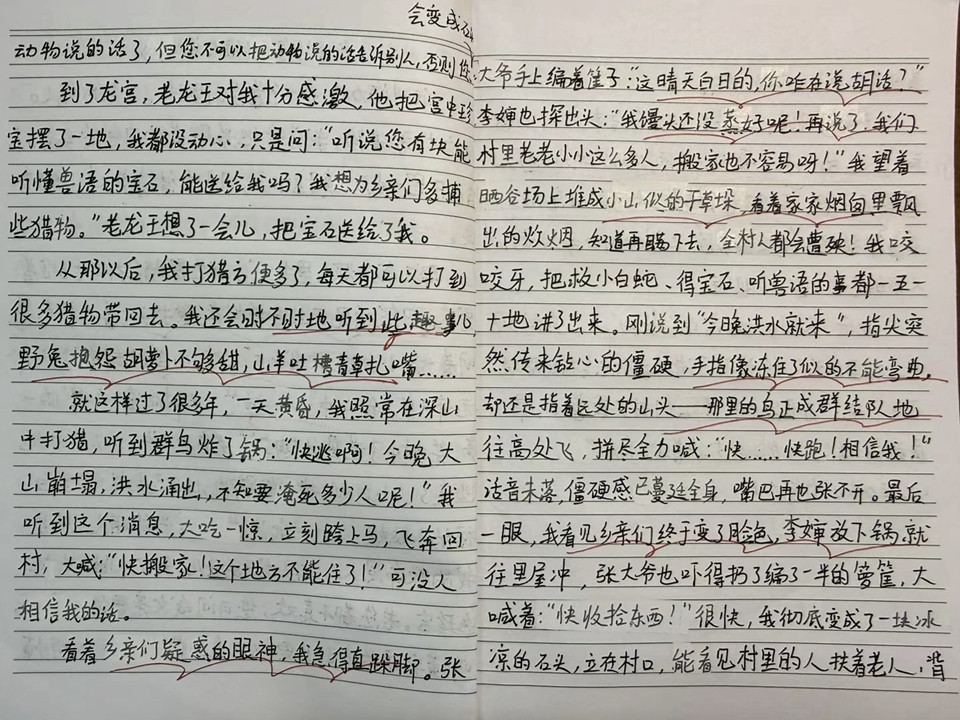 会变成石
动物说的话了，但您不可以把动物说的话告诉别人，否则您
到了龙宫，老龙王对我十分感激，他把宫中珍
宝摆了一地，我都没动心，只是问：“听说您有块能
听懂兽语的宝石，能送给我吗？我想为乡亲们多捕
些猎物。”老龙王想了一会儿，把宝石送给了我。
从那以后，我打猎方便多了，每天都可以打到
很多猎物带回去。我还会时不时地听到些趣事儿
野兔抱怨胡萝卜不够甜，山羊吐槽青草扎嘴……
就这样过了很多年，一天黄昏，我照常在深山
中打猎，听到群鸟炸了锅：“快逃啊！今晚大
山崩塌，洪水涌出，不知要淹死多少人呢！”我
听到这个消息，大吃一惊，立刻跨上马，飞奔回
村，大喊：“快搬家！这个地方不能住了！”可没人
相信我的话。
看着乡亲们疑惑的眼神，我急得直跺脚。张
大爷手上编着筐子：“这晴天白日的，你咋在说胡话？”
李婶也探出头：“我馒头还没蒸好呢！再说了，我们
村里老老小小这么多人，搬家也不容易呀！”我望着
晒谷场上堆成小山似的干草垛，看着家家烟囱里飘
出的炊烟，知道再瞒下去，全村人都会遭殃！我咬
咬牙，把救小白蛇、得宝石、听兽语的事都一五一
十地讲了出来。刚说到“今晚洪水就来”，指尖突
然传来钻心的僵硬，手指像冻住了似的不能弯曲，
却还是指着远处的山头——那里的鸟正成群结队地
往高处飞，拼尽全力喊：“快……快跑！相信我！”
话音未落，僵硬感已蔓延全身，嘴巴再也张不开。最后
一眼，我看见乡亲们终于变了脸色，李婶放下锅就
往里屋冲，张大爷也吓得扔了编了一半的箩筐，大
喊着：“快收拾东西！”很快，我彻底变成了一块冰
凉的石头，立在村口，能看见村里的人扶着老人，背